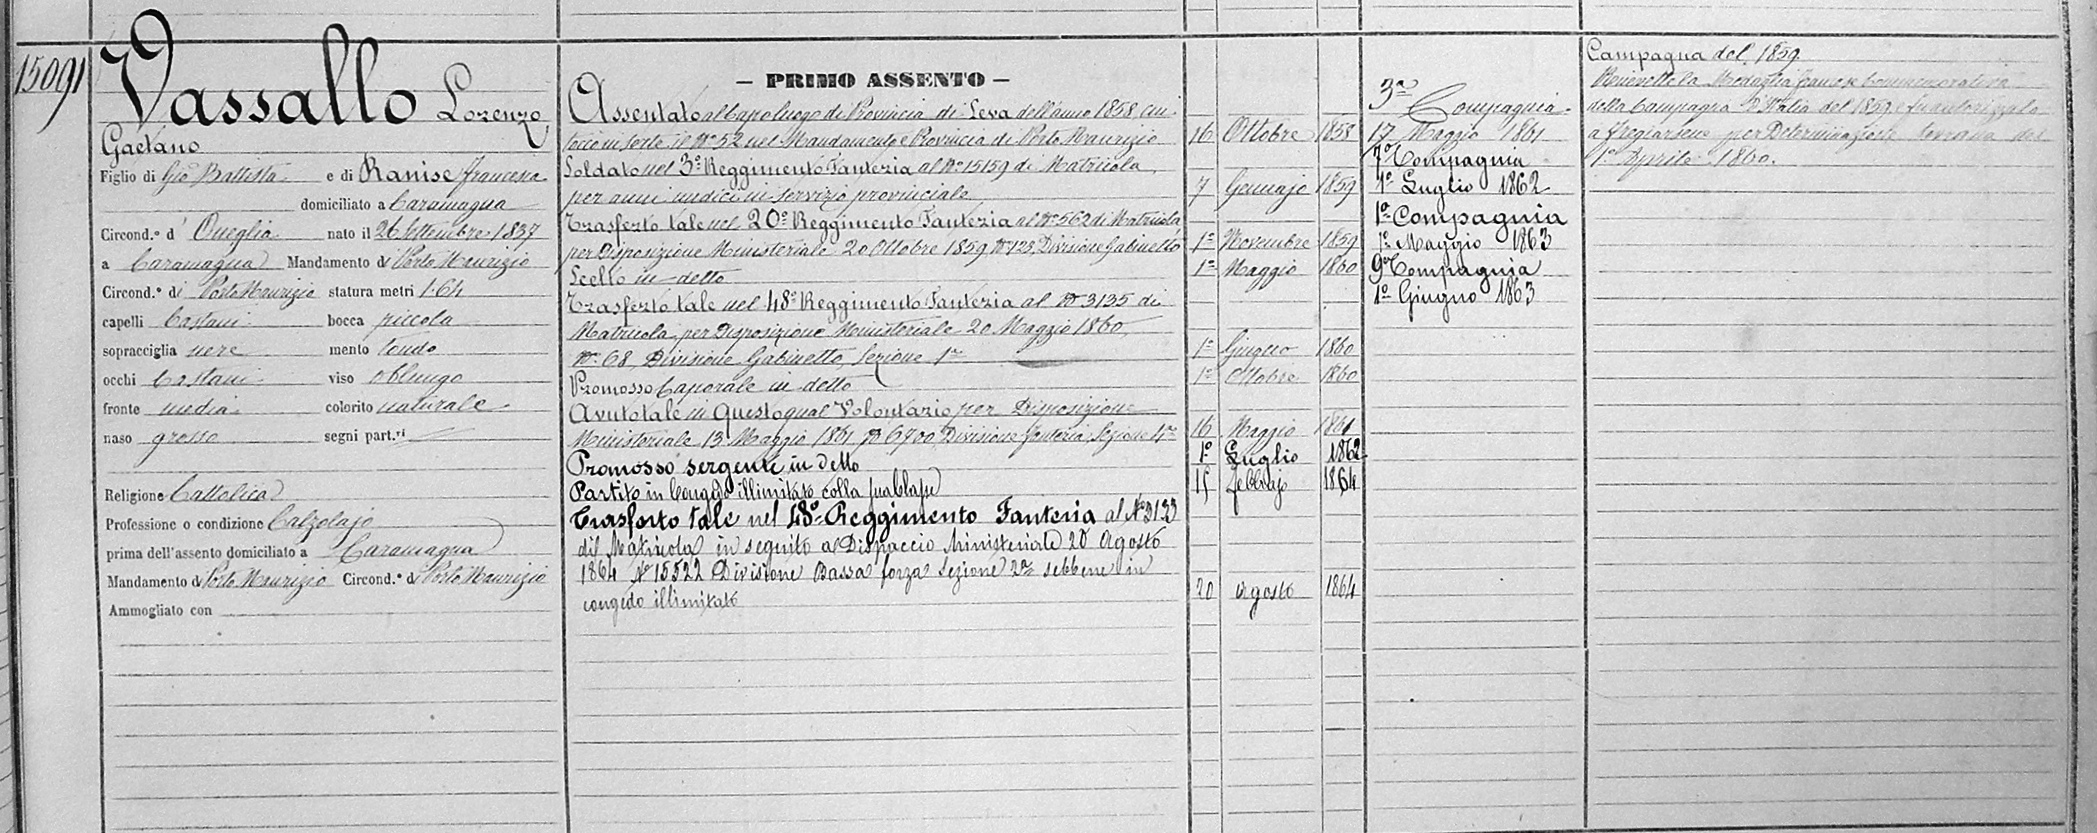 15091
Vassallo Lorenzo
Gaetano
Figlio di Gio Battista e di Ranise Francesca
domiciliato a Caramagna
Circond.º d' Oneglia nato il 26 Settembre 1837
a Caramagna Mandamento di Porto Maurizio
Circond.º di Porto Maurizio statura metri 1.64
capelli Castani bocca piccola
sopracciglia nere mento tondo
occhi Castani viso oblungo
fronte media colorito naturale
naso grosso segni part.ri
Religione Cattolica
Professione o condizione Calzolajo
prima dell'assento domiciliato a Caramagna
Mandamento di Porto Maurizio Circond.º di Porto Maurizio
Ammogliato con
– PRIMO ASSENTO –
Assentato al Capoluogo di Provincia di Leva dell'anno 1858, cui
tocco in sorte il Nº 52 nel Mandamento e Provincia di Porto Maurizio 16 Ottobre 1858
Soldato nel 3º Reggimento Fanteria al Nº 15159 di Matricola
per anni undici in servizio provinciale 7 Gennajo 1859
Trasferto tale nel 20º Reggimento Fanteria al Nº 562 di Matricola
per Disposizione Ministeriale 20 Ottobre 1859 Nº 123, Divisione Gabinetto 1º Novembre 1859
Scelto in detto 1º Maggio 1860
Trasferto tale nel 48º Reggimento Fanteria al Nº 3135 di
Matricola, per Disposizione Ministeriale 20 Maggio 1860,
Nº 68, Divisione Gabinetto, Sezione 1ª 1º Giugno 1860
Promosso Caporale in detto 1º Ottobre 1860
Avuto tale in Questo qual Volontario per Disposizione
Ministeriale 13 Maggio 1861 Nº 6900 Divisione fanteria Sezione 16 Maggio 1861
Promosso sergente in detto 1º Luglio 1862
Partito in Congedo illimitato colla sua classe 15 febbrajo 1864
Trasferto tale nel 48º Reggimento Fanteria al Nº
di Matricola in seguito a Dispaccio Ministeriale 20 Agosto
1864 Nº 15522 Divisione Bassa forza Sezione 2ª sebbene in
congedo illimitato 20 agosto 1864
3ª Compagnia
17 Maggio 1861
7ª Compagnia
1º Luglio 1862
1ª Compagnia
1º Maggio 1863
9ª Compagnia
1º Giugno 1863
Campagna del 1859.
Medaglia francese Commemorativa
della Campagna d'Italia del 1859, e fu autorizzato
a fregiarsene per Determinazione Sovrana del
1º Aprile 1860.